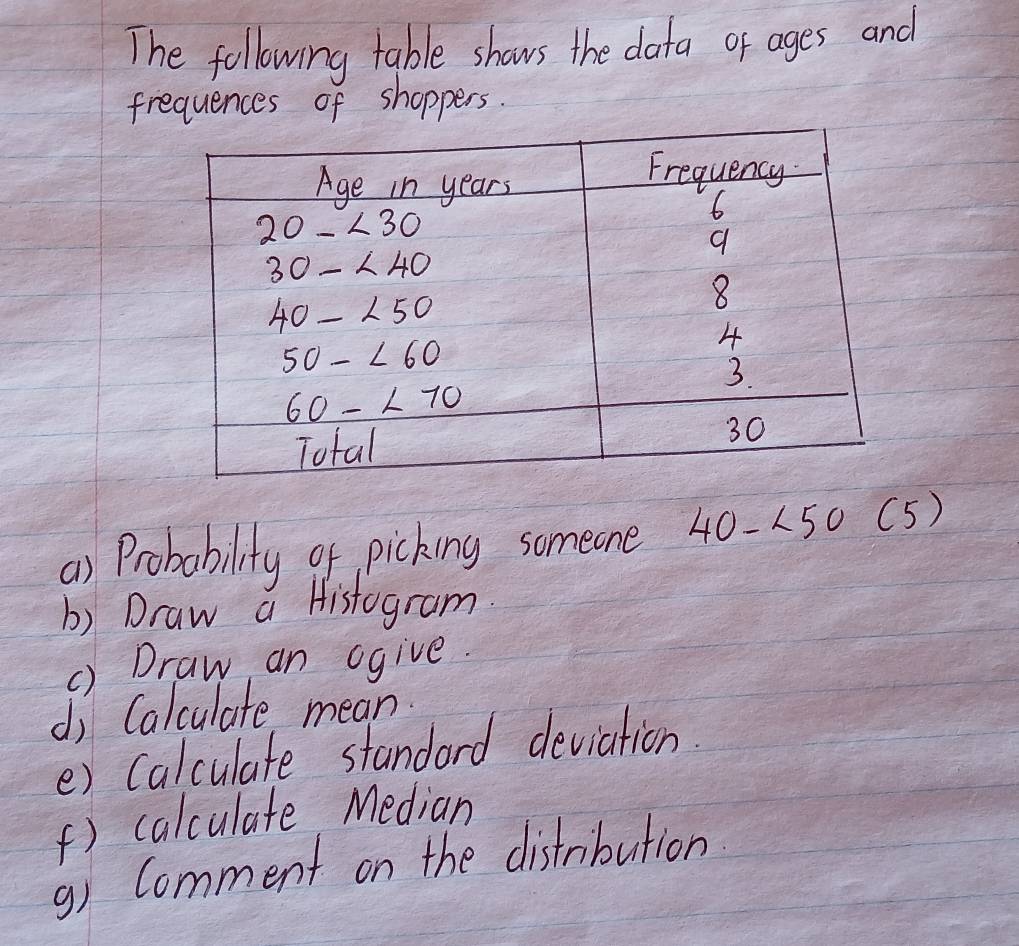 The following table shows the data of ages and
frequences of shoppers.
Age in years Frequency
20 - <30 6
30 - <40 9
40 - <50 8
50 - <60 4
60 - <70 3.
Total 30
a) Probability of picking someone 40-<50 (5)
b) Draw a Histogram.
c) Draw an ogive.
d) Calculate mean.
e) Calculate standard deviation.
f) calculate Median
g) Comment on the distribution.